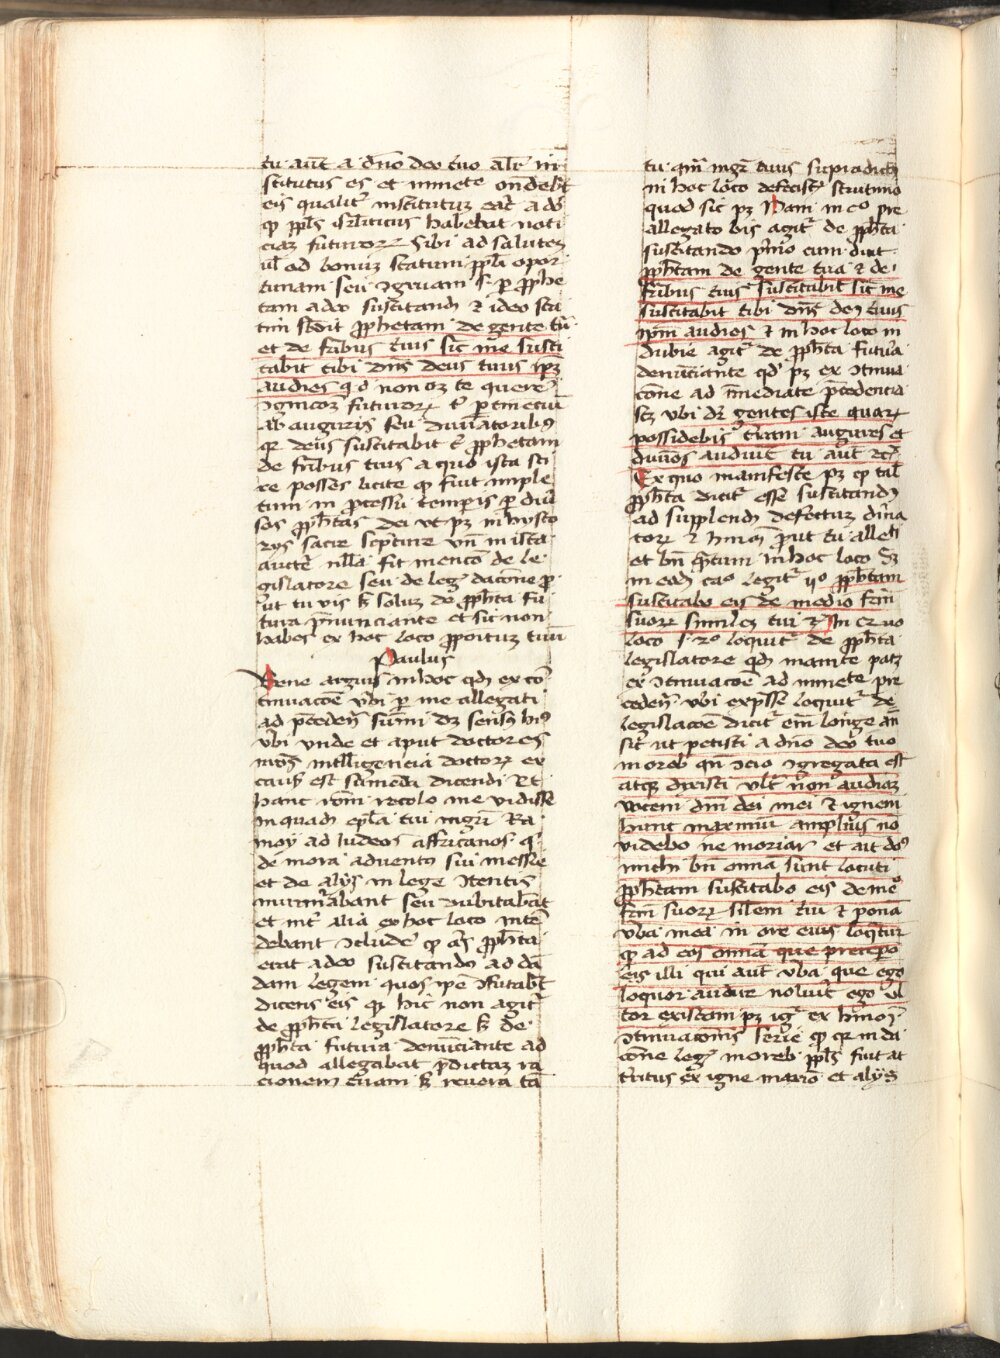 tu aut a dno deo tuo alr in
stitutus es et inmete ondebt
eis qualit institutus eat a do
qp ppls isrliticus habebat noti
ciaz futuror sibi ad salutez
ul ad bonuz statum ppli opor
tunam seu ɔgruam s p pphe
tam a deo suscitand et ideo sta
tim sbdit pphetam de gente tu
et de fribus tuis sic me susci
tabit tibi dns deus tuus ipz
audies non oz te querer
futuror
ab auguris seu diuinatoribus
qr deus suscitabit t pphetam
de fribus tuis a quo ista sci
re posses licite qp fuit imple
tum in pcessu temporis p diu
sos pphetas dei vt pz in hysto
rys sacre scpture vn in ista
aucte nlla fit mencio de le
gislatore seu de leg dacione p
ut tu vis sz soluz de ppheta fu
tura pnunciante et sic non
habes ex hoc loco ppoitum tuum
Paulus
Bene arguis in hoc qd ex co
tinuacoe vbi p me allegati
ad pceden sumi dz sensus hius
vbi vnde et aput doctores
nros intelligencia doctor ex
causis est sumenda dicendi Et
hanc rom recolo me vidisse
in quad epla tui mgri Ra
moy ad iudeos affricanos q
de mora aduentus sui messie
et de alys in lege ɔtentis
murmrabant seu dubitabat
et int alia ex hoc loco inten
debant ɔclude qp als ppheta
erat a deo suscitandus ad da
dam legem quos ipe ɔfutabat
dicens eis qp hic non agit
de ppheta legislatore sz de
ppheta futura denunciante ad
quod allegabat pdictaz ra
cionem tuam sz reuora ta
tu qm mgr tuus supradict
in hoc loco defecist scrutinio
quod sic pz Nam in co pre
allegato bis agit de ppheta
suscitando pmo cum dicit
pphetam de gente tua et de
fribus tuis suscitabit sic me
suscitabit tibi dns deus tuus
ipm audies et in hoc loco in
dubie agit de ppheta futura
denunciante qd pz ex ɔtinua
cone ad inmediate pcedencia
scz vbi dr gentes iste quar
possidebis terram augures et
diuinos audiut tu aut etc
Ex quo manifeste pz qp tal
ppheta dicit esse suscitand
ad supplend defectuz diuina
tor et hmoi put tu alleg
et bn quatum in hoc loco Sz
in eod cao legit ijo pphetam
suscitabo eis de medio frm
suor similez tui etc In cuo
loco loquit de ppheta
legislatore qd manite patz
ex ɔtinuacoe ad inmete pre
ceden vbi expsse loquit de
legislacoe dicit em longe an
sic ut petisti a dno deo tuo
in oreb qn ɔcio ɔgregata est
atqz dixisti vlt non audiaz
vocem dni dei mei et ignem
hunc maximu amplius no
videbo ne moriar et ait dns
michi bn omia sunt locuti
pphetam suscitabo eis de me
frm suor silem tui et pona
vba mea in ore eius loqtur
qp ad eos omia que precepo
eis illi qui aut vba que ego
loquor audire noluit ego ul
tor existam pz ig ex hmoi
ɔtinuacionis serie qp qr in da
cione leg in oreb ppls fuit at
tritus ex igne maxio et alys